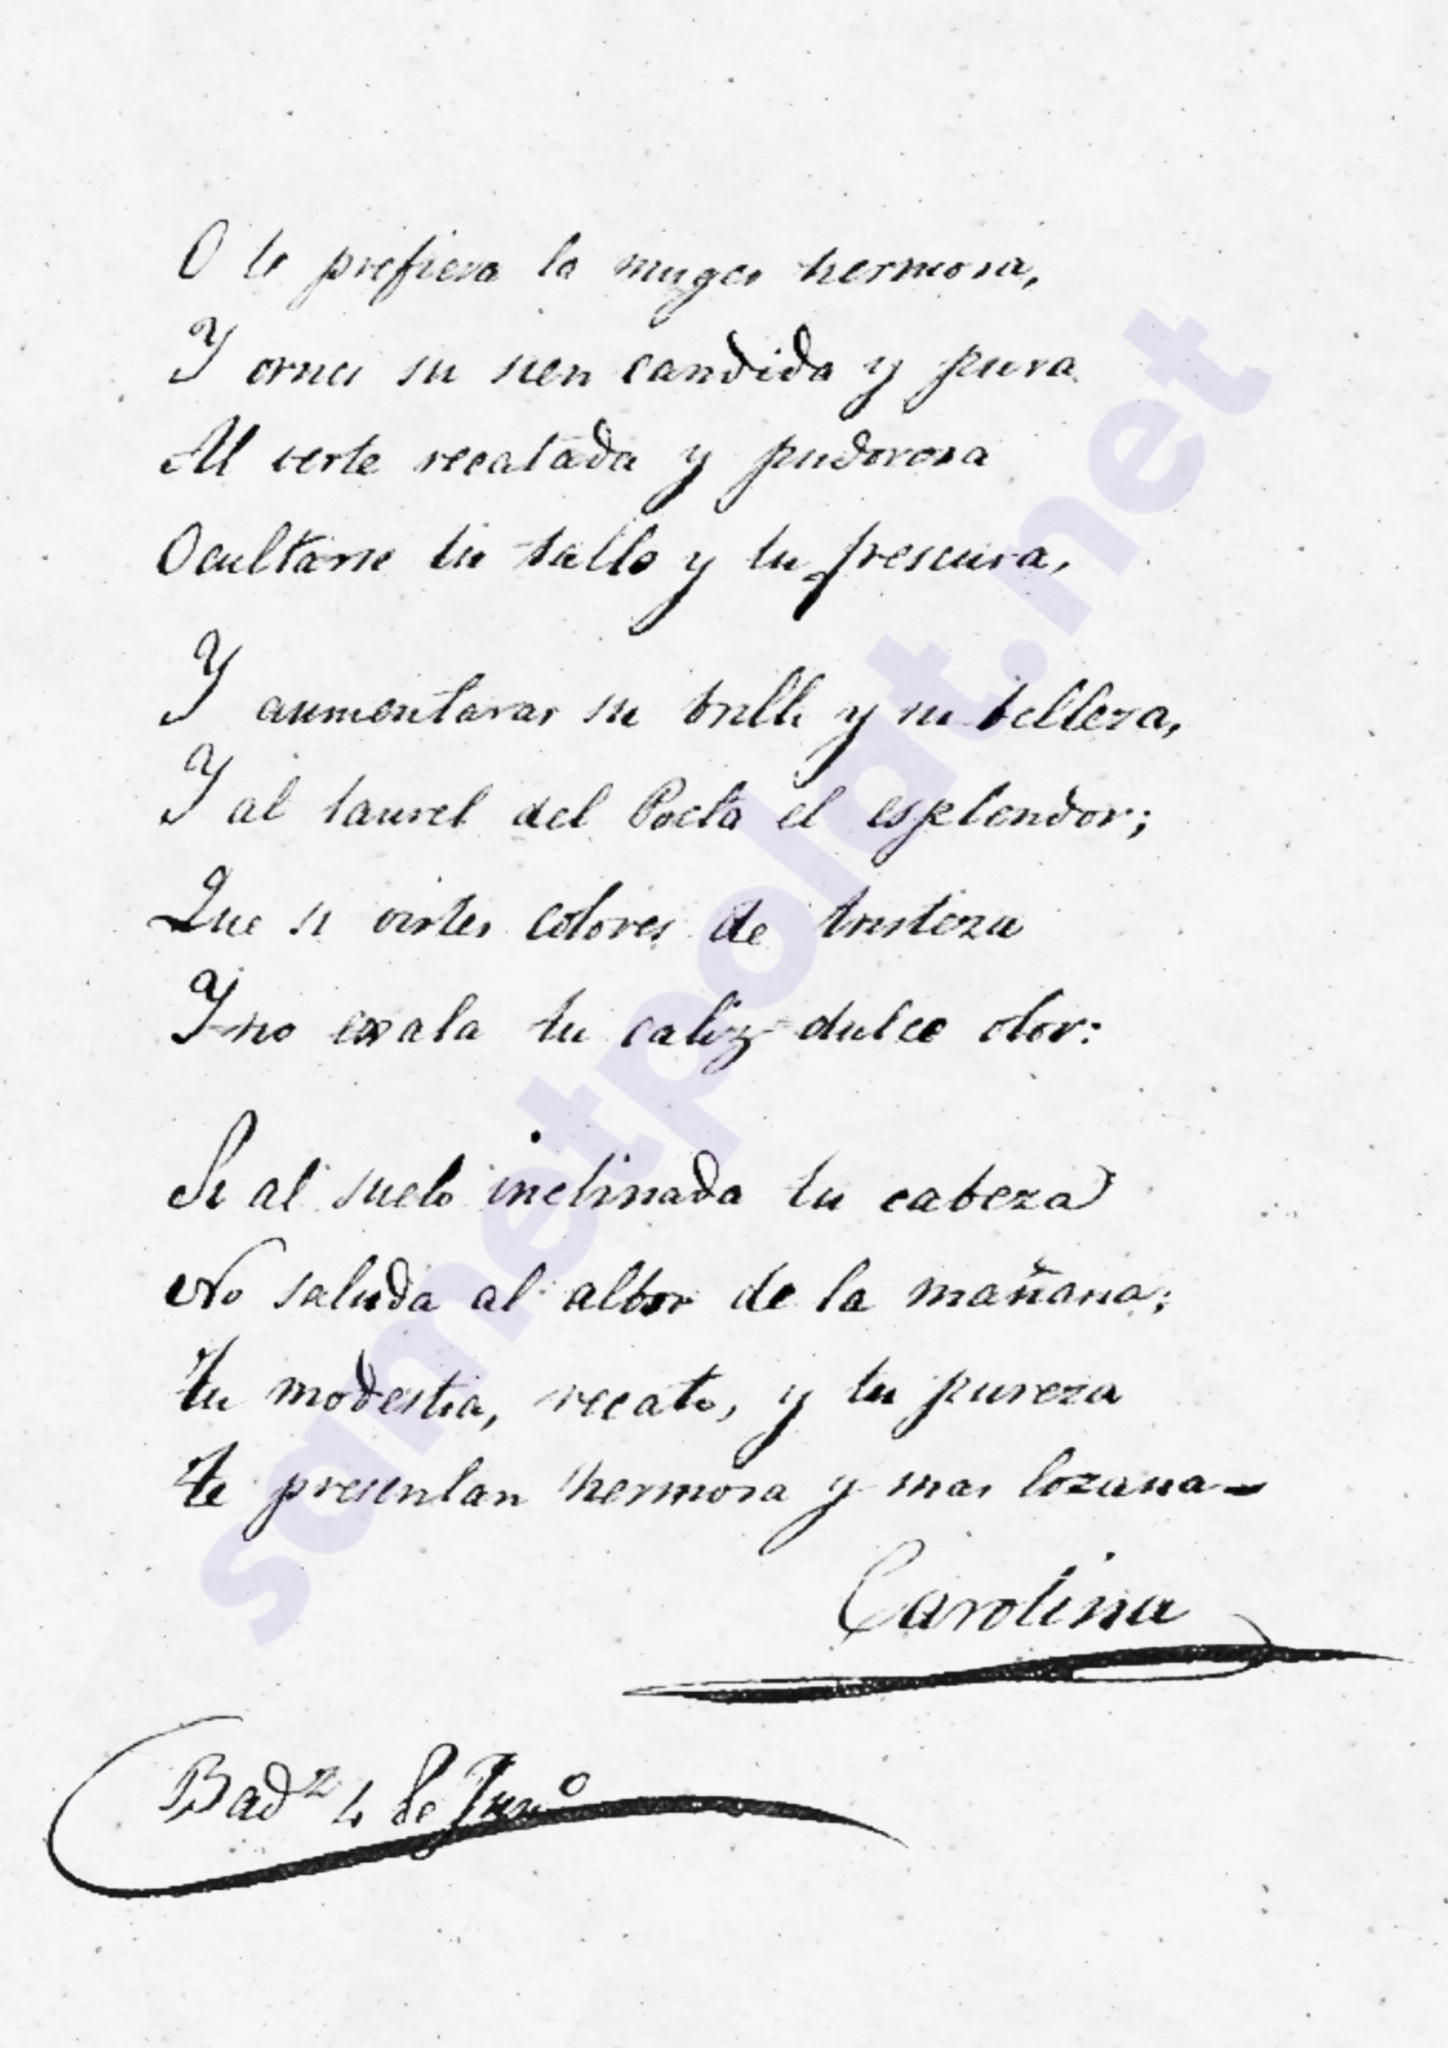 O te prefiera la muger hermosa,
Y ornes su sien candida y pura
Al verte recatada y pudorosa
Ocultarse tu tallo y tu frescura,
Y aumentaras su brillo y su belleza,
Y al laurel del Poeta el esplendor;
Que si vistes colores de tristeza
Y no exala tu caliz dulce olor:
Si al suelo inclinada tu cabeza
No saluda al albor de la mañana;
Tu modestia, recato, y tu pureza
Te presentan hermosa y mas lozana
Carolina
Bad.z 4 de Jun.o
sametpolat.net